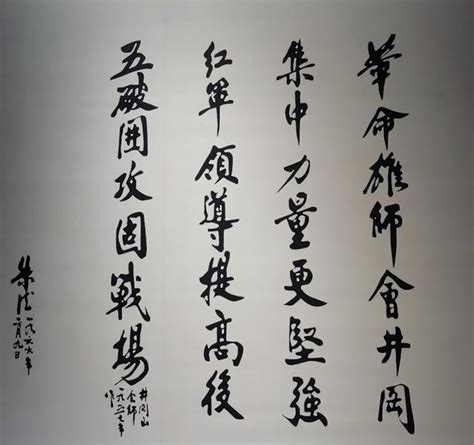 革命雄師會井岡
集中力量更堅強
紅軍領導提高後
五破圍攻固戰場
井岡山
会師
一九五七年
作
朱德一九六六年
月九日